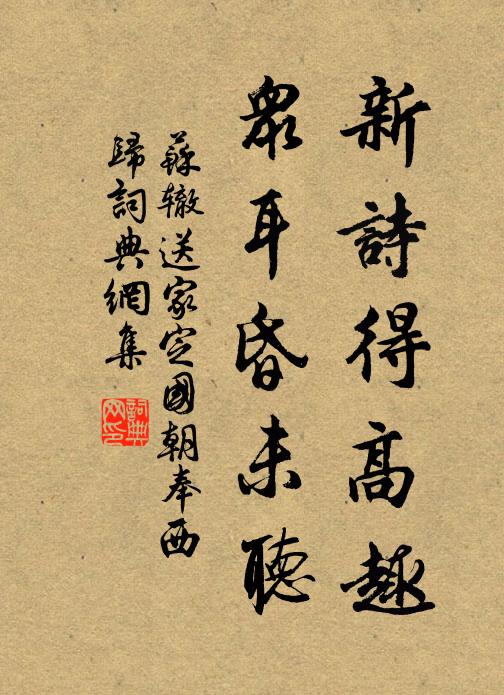 新詩得高趣
眾耳昏未聽
蘇辙送家定國朝奉西
歸詞典網集
詞典网印